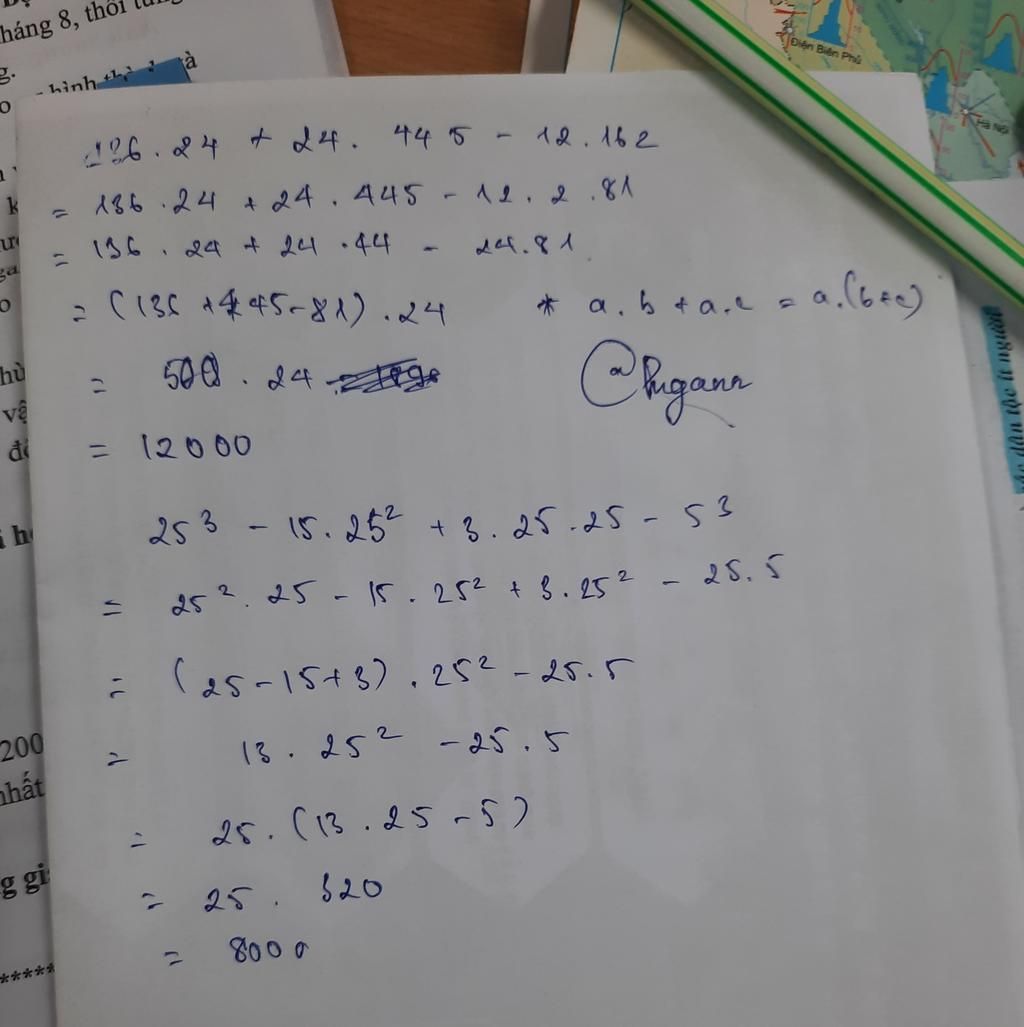 háng 8, thời
g.
Điện Biên Phủ
Hà Nội
136.24 + 24. 445 - 12.162
= 136.24 + 24.445 - 12.2.81
= 136.24 + 24.44 - 24.81
= (136 + 445 - 81).24 * a.b + a.c = a.(b+c)
= 500.24
= 12000
25³ - 15.25² + 3.25.25 - 5³
= 25².25 - 15.25² + 3.25² - 25.5
= (25 - 15 + 3).25² - 25.5
= 13.25² - 25.5
= 25.(13.25 - 5)
= 25. 320
= 8000
dân tộc ít người
200
nhất
g gi
*****